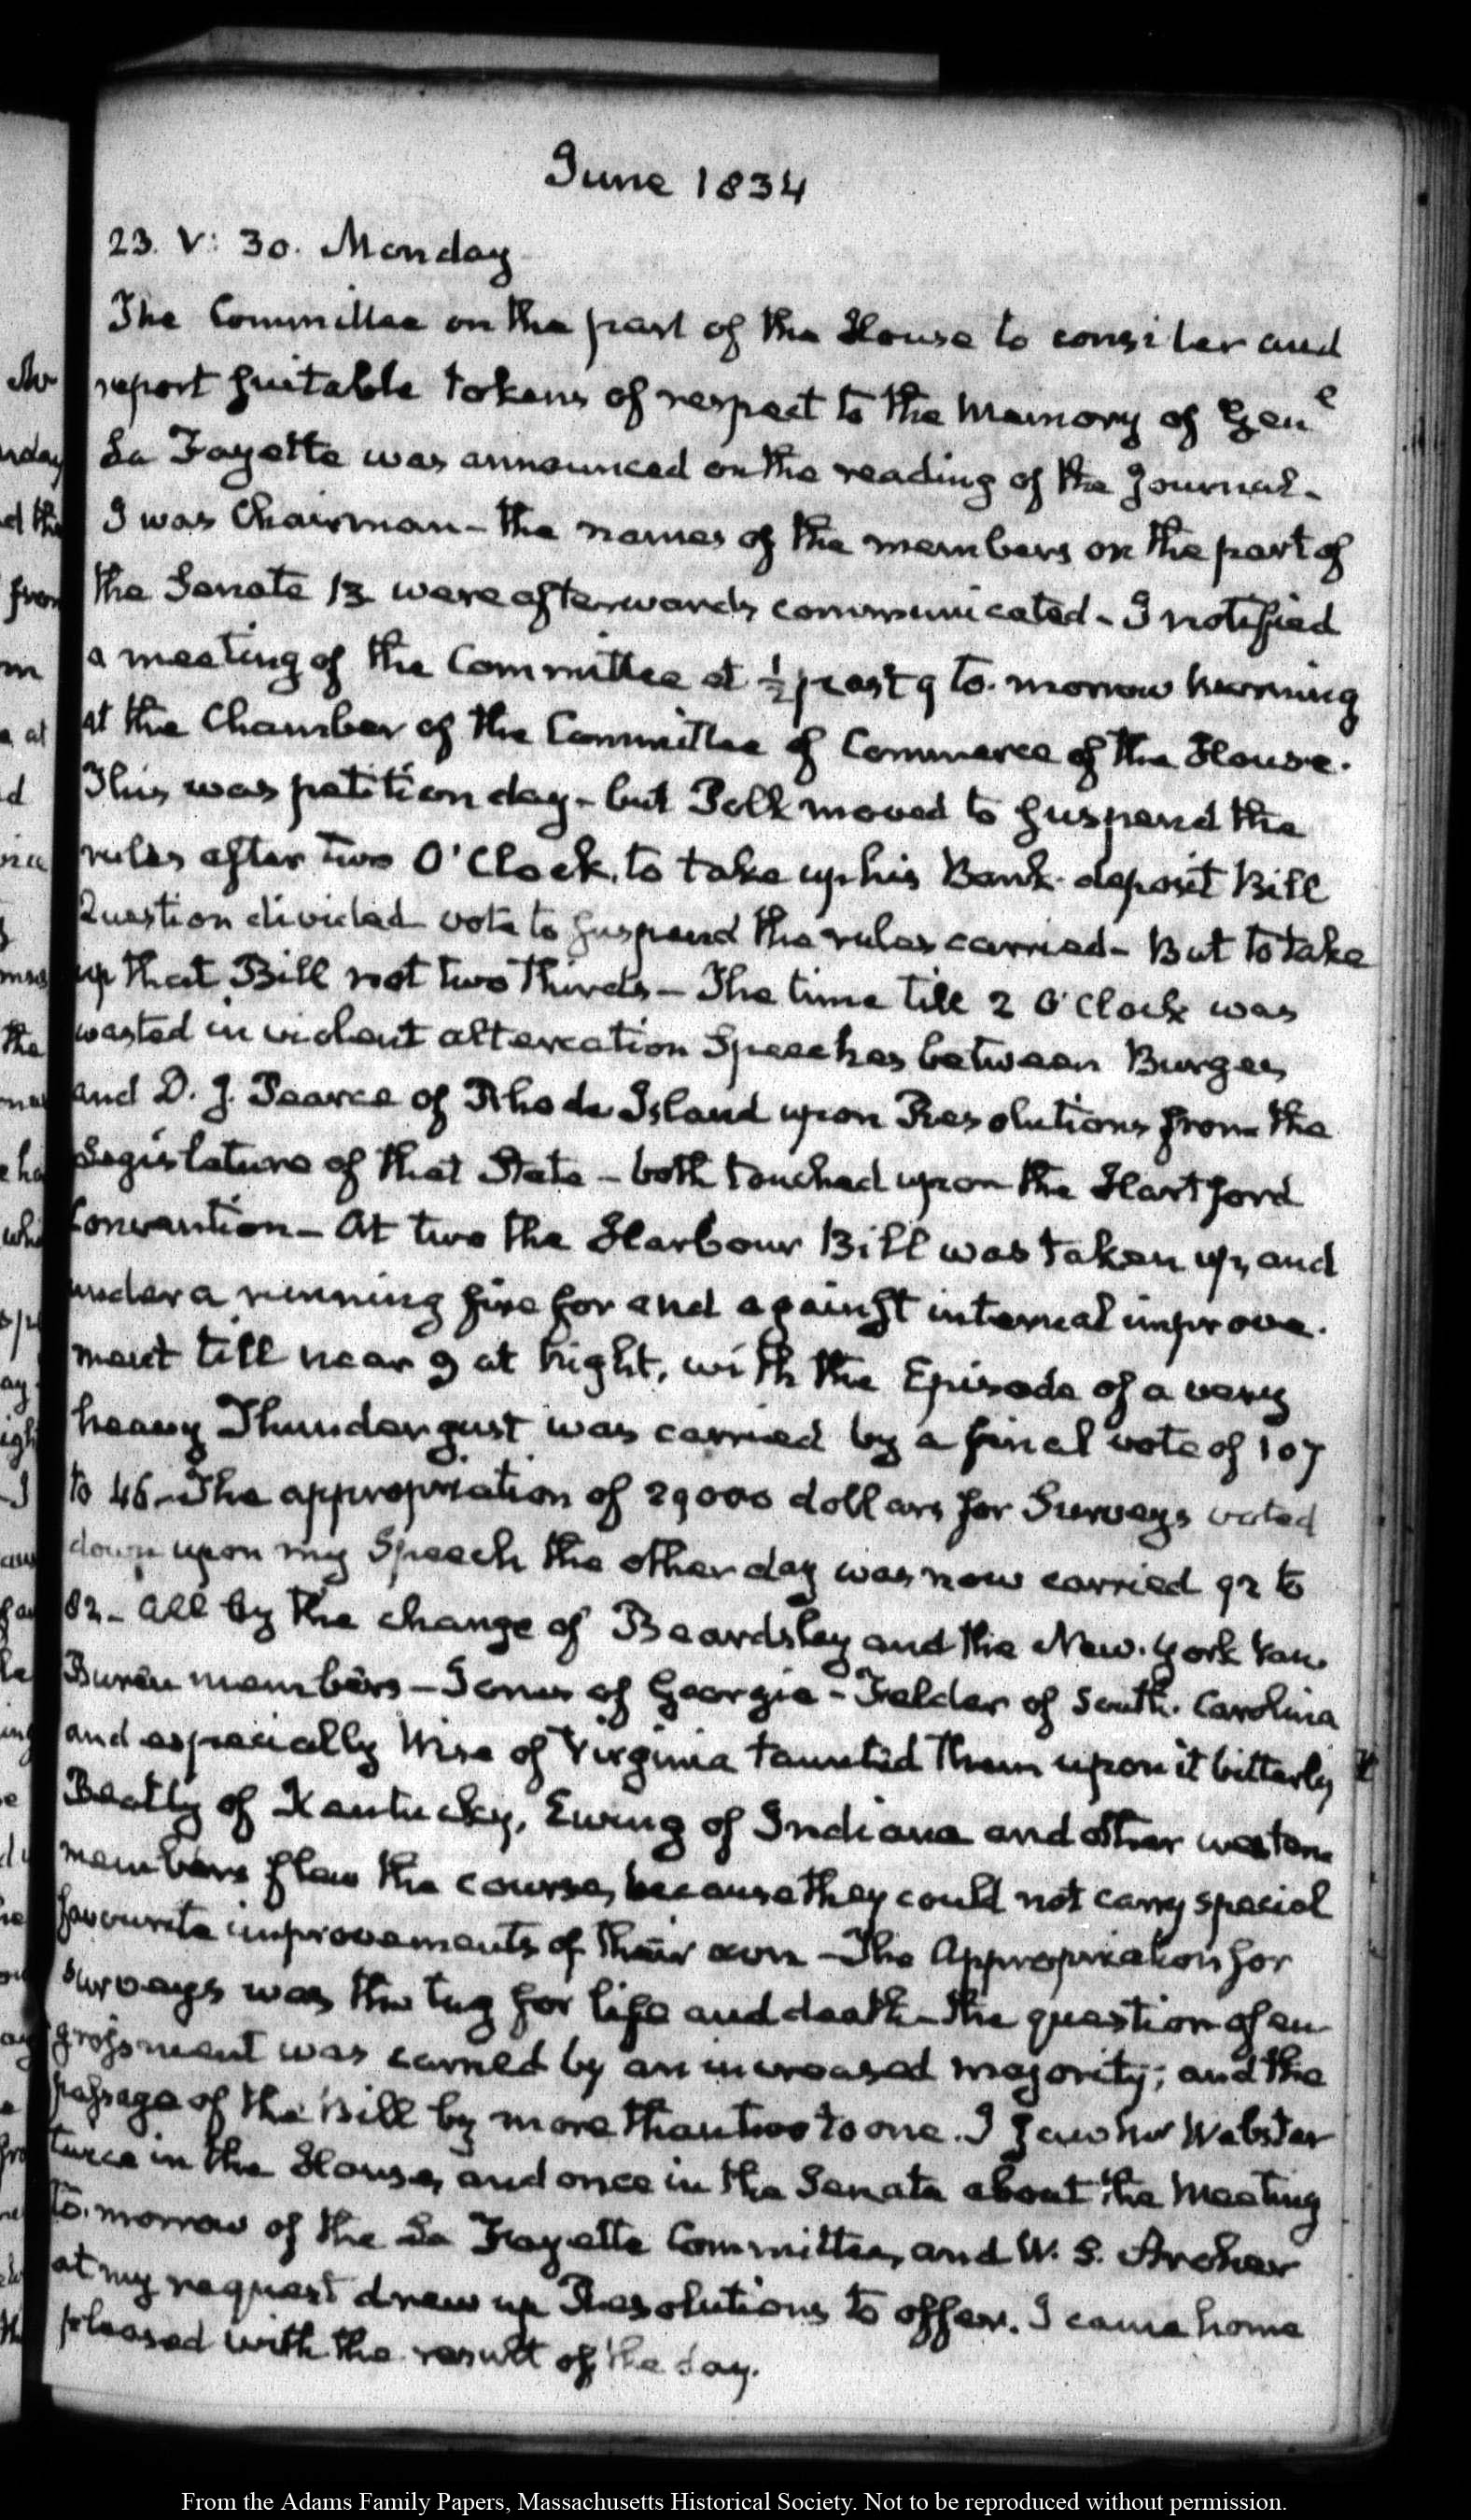 June 1834
23. V: 30. Monday
The Committee on the part of the House to consider and
report suitable tokens of respect to the Memory of Genl
La Fayette was announced on the reading of the Journal-
I was Chairman- the names of the members on the part of
the Senate 13 were afterwards communicated- I notified
a meeting of the Committee at ½ past 9 to-morrow morning
at the Chamber of the Committee of Commerce of the House.
This was petition day- but Polk moved to suspend the
rules after two O'Clock, to take up his Bank-deposit Bill
Question divided- vote to suspend the rules carried- But to take
up that Bill not two thirds- The time till 2 O'Clock was
wasted in violent altercation Speeches between Burges
and D. J. Pearce of Rhode-Island upon Resolutions from the
Legislature of that State- both touched upon the Hartford
Convention- At two the Harbour Bill was taken up, and
under a running fire for and against internal improve-
ment till near 9 at Night, with the Episode of a very
heavy Thundergust was carried by a final vote of 107
to 46- The appropriation of 29000 dollars for Surveys voted
down upon my Speech the other day was now carried 92 to
82- All by the change of Beardsley and the New-York Van
Buren members- Jones of Georgia- Felder of South-Carolina
and especially Wise of Virginia taunted them upon it bitterly
Beatty of Kentucky, Ewing of Indiana and other western
members flew the course, because they could not carry special
favourite improvements of their own- The Appropriation for
surveys was the tug for life and death- the question of en-
grossment was carried by an increased majority; and the
passage of the Bill by more than two to one. I saw Mr Webster
twice in the House, and once in the Senate about the Meeting
to-morrow of the La Fayette Committee, and W. S. Archer
at my request drew up Resolutions to offer. I came home
pleased with the result of the day.
From the Adams Family Papers, Massachusetts Historical Society. Not to be reproduced without permission.